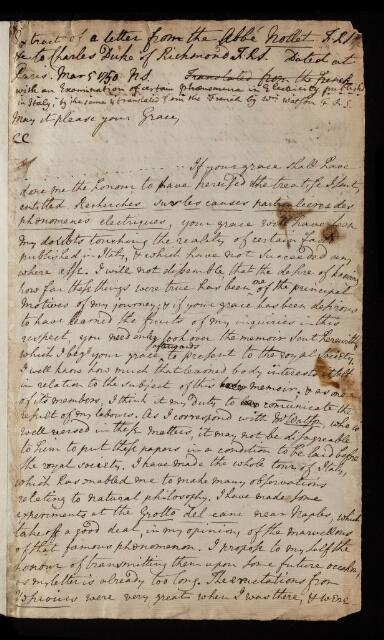 Extract of a letter from the Abbé Nollet F.R.S.
&c to Charles Duke of Richmond F.R.S. Dated at
Paris. Mar 5 1750 N.S. Translated from the French
with an Examination of certain Phœnomena in Electricity published
in Italy; by the same & translated from the French by Wm Watson F.R.S.
May it please your Grace,
If your grace shall have
done me the honour to have perused the treatise I sent,
entitled Recherches sur les causes particulieres des
phœnomenes electriques, your grace will have seen
my doubts touching the reality of certain facts
published in Italy, & which have not succeeded any
where else. I will not dissemble that the desire of knowing
how far these things were true has been one of the principal
motives of my journey; & if your grace has been desirous
to have learned the fruits of my inquiries in this
respect, you need only look over the memoir sent herewith,
which I beg your grace to present to the royal society.
I well know how much that learned body interests itself
in relation to the subject of this memoir; & as one
of its members, I think it my duty to comunicate the
result of my labours. As I correspond with Mr Watson, who is
well versed in these matters, it may not be disagreable
to him to put these papers in a condition to be laid before
the royal society. I have made the whole tour of Italy,
which has enabled me to make many observations
relating to natural philosophy. I have made some
experiments at the Grotta del cane near Naples, which
take off a good deal, in my opinion, of the marvellous
of that famous phœnomenon. I propose to my self the
honour of transmitting them upon some future occasion,
as my letter is already too long. The eructations from
Vesuvius were very great when I was there, & were